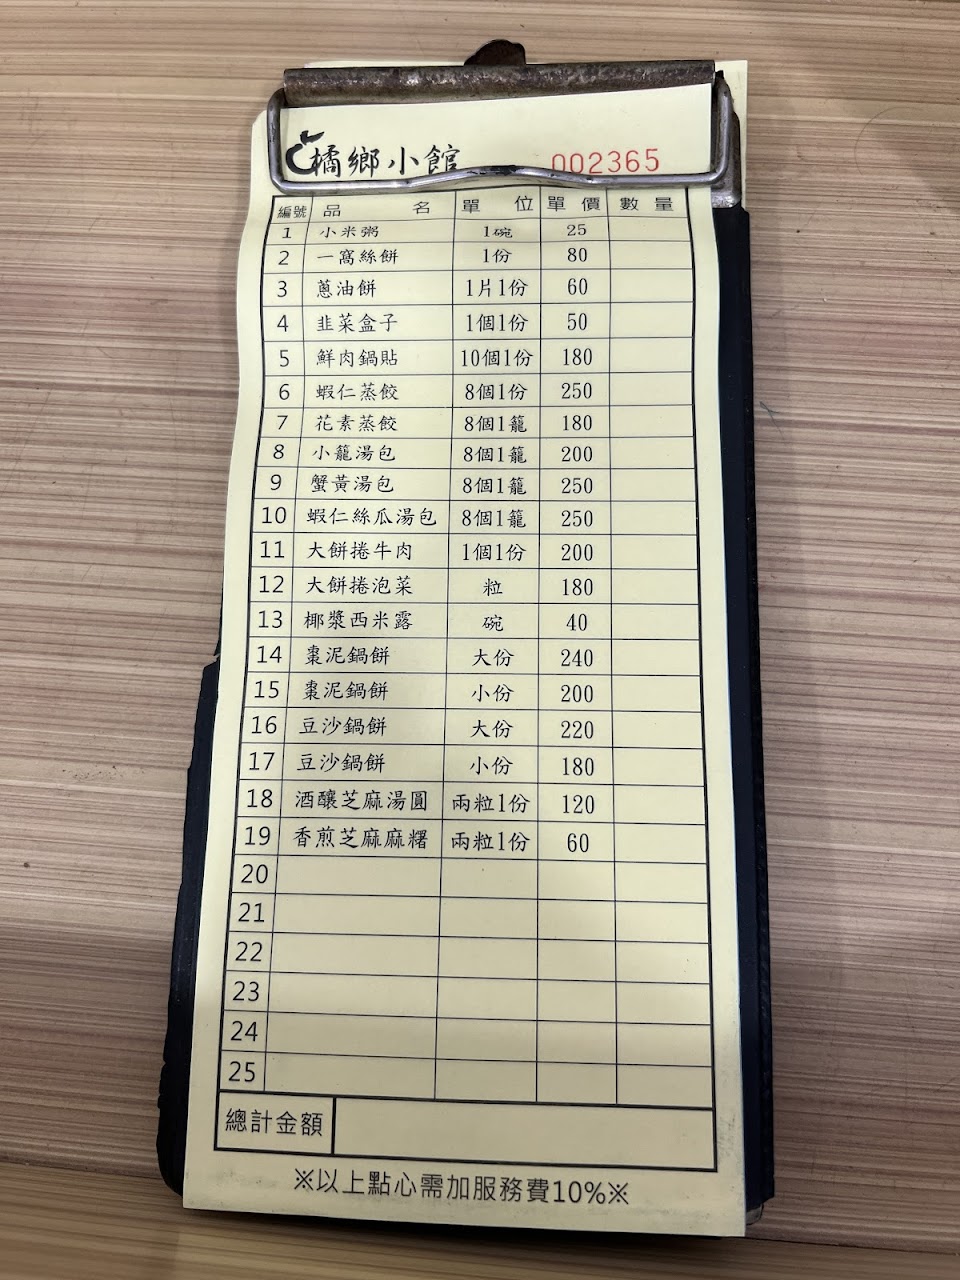 橘鄉小館 002365
編號 品名 單位 單價 數量
1 小米粥 1碗 25
2 一窩絲餅 1份 80
3 蔥油餅 1片1份 60
4 韭菜盒子 1個1份 50
5 鮮肉鍋貼 10個1份 180
6 蝦仁蒸餃 8個1份 250
7 花素蒸餃 8個1籠 180
8 小籠湯包 8個1籠 200
9 蟹黃湯包 8個1籠 250
10 蝦仁絲瓜湯包 8個1籠 250
11 大餅捲牛肉 1個1份 200
12 大餅捲泡菜 粒 180
13 椰漿西米露 碗 40
14 棗泥鍋餅 大份 240
15 棗泥鍋餅 小份 200
16 豆沙鍋餅 大份 220
17 豆沙鍋餅 小份 180
18 酒釀芝麻湯圓 兩粒1份 120
19 香煎芝麻麻糬 兩粒1份 60
20
21
22
23
24
25
總計金額
※以上點心需加服務費10%※